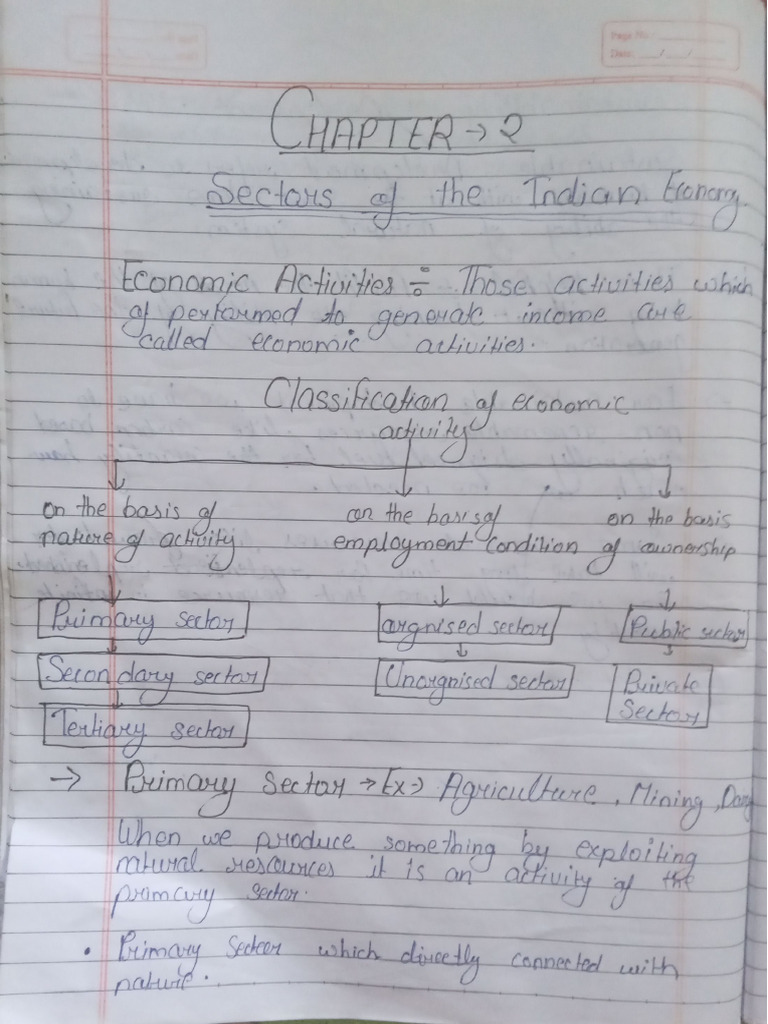 Page No.:
Date: / /
CHAPTER → 2
Sectors of the Indian Economy.
Economic Activities ÷ Those activities which
of performed to generate income are
called economic activities.
Classification of economic
activity
on the basis of
nature of activity
on the basis of
employment condition
on the basis
of ownership
Primary sector
Secondary sector
Tertiary sector
orgnised sector
Unorgnised sector
Public sector
Private
Sector
→ Primary Sector → Ex → Agriculture, Mining,
When we produce something by exploiting
natural resources it is an activity of the
primary sector.
• Primary Sector which directly connected with
nature.